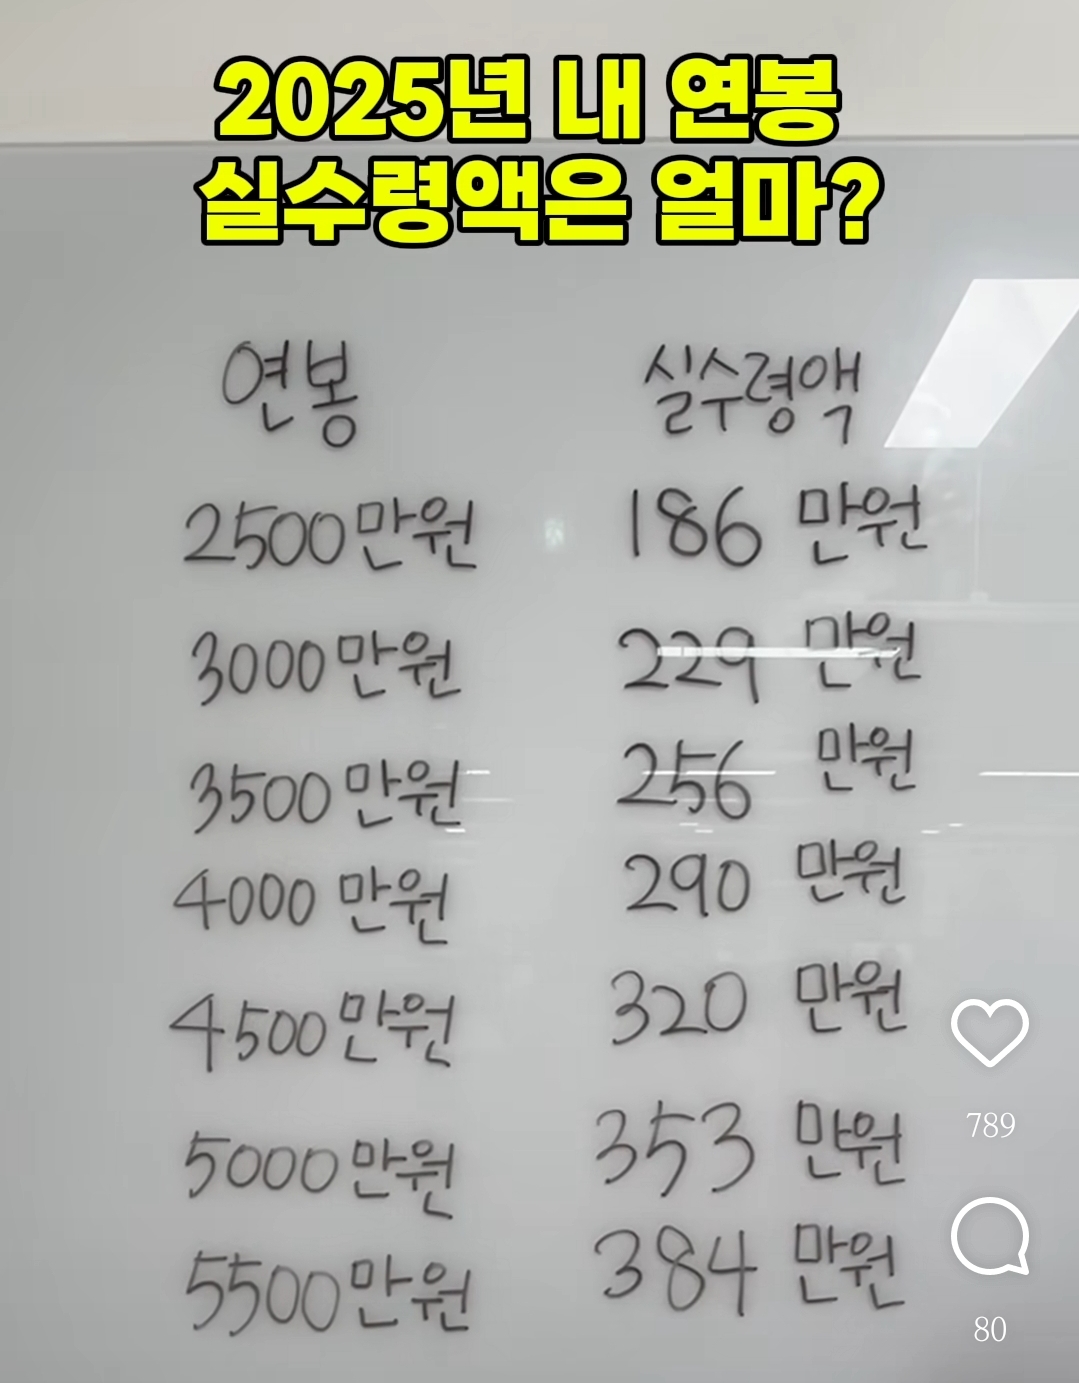 2025년 내 연봉
실수령액은 얼마?
연봉 실수령액
2500만원 186 만원
3000만원 229 만원
3500만원 256 만원
4000 만원 290 만원
4500만원 320 만원
5000만원 353 만원
5500만원 384 만원
789
80